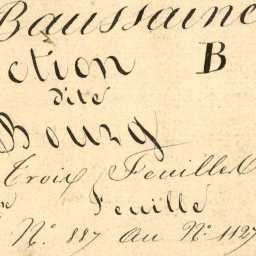 Baussaine
ction B
dite
Bourg
Trois Feuilles
Feuille
N° 887 au N° 1127